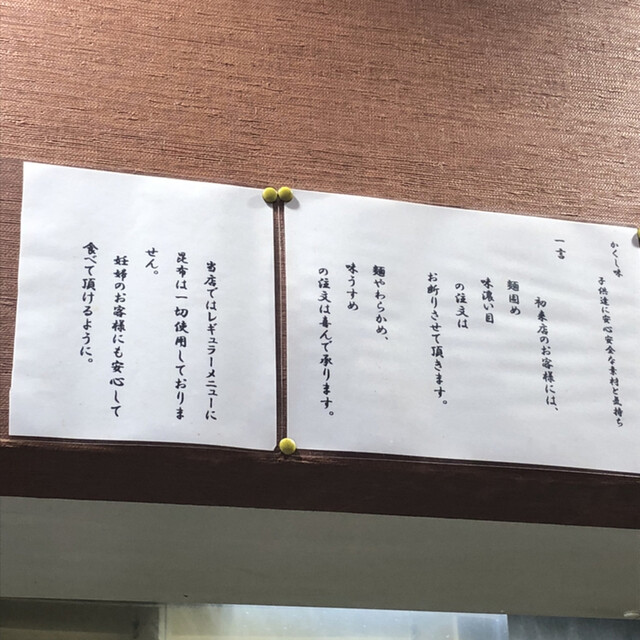 かくし味　子供達に安心安全な素材と気持ち
一言
初来店のお客様には、
麺固め
味濃い目
の注文は
お断りさせて頂きます。
麺やわらかめ、
味うすめ
の注文は喜んで承ります。
当店ではレギュラーメニューに
昆布は一切使用しておりま
せん。
妊婦のお客様にも安心して
食べて頂けるように。